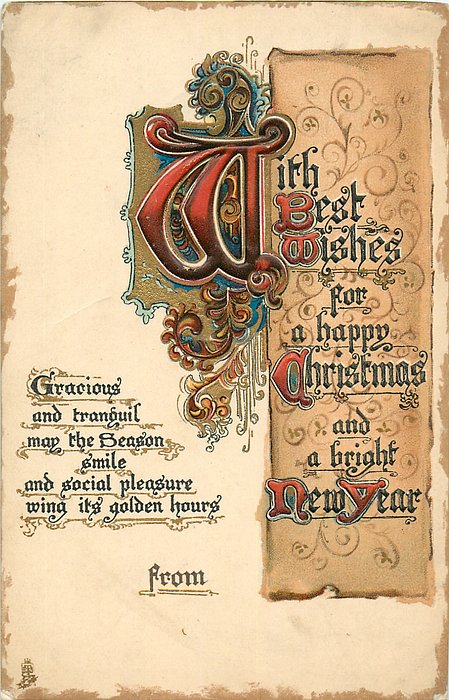 With
Best
Wishes
for
a happy
Christmas
and
a bright
New Year
Gracious
and tranquil
may the Season
smile
and social pleasure
wing its golden hours
From